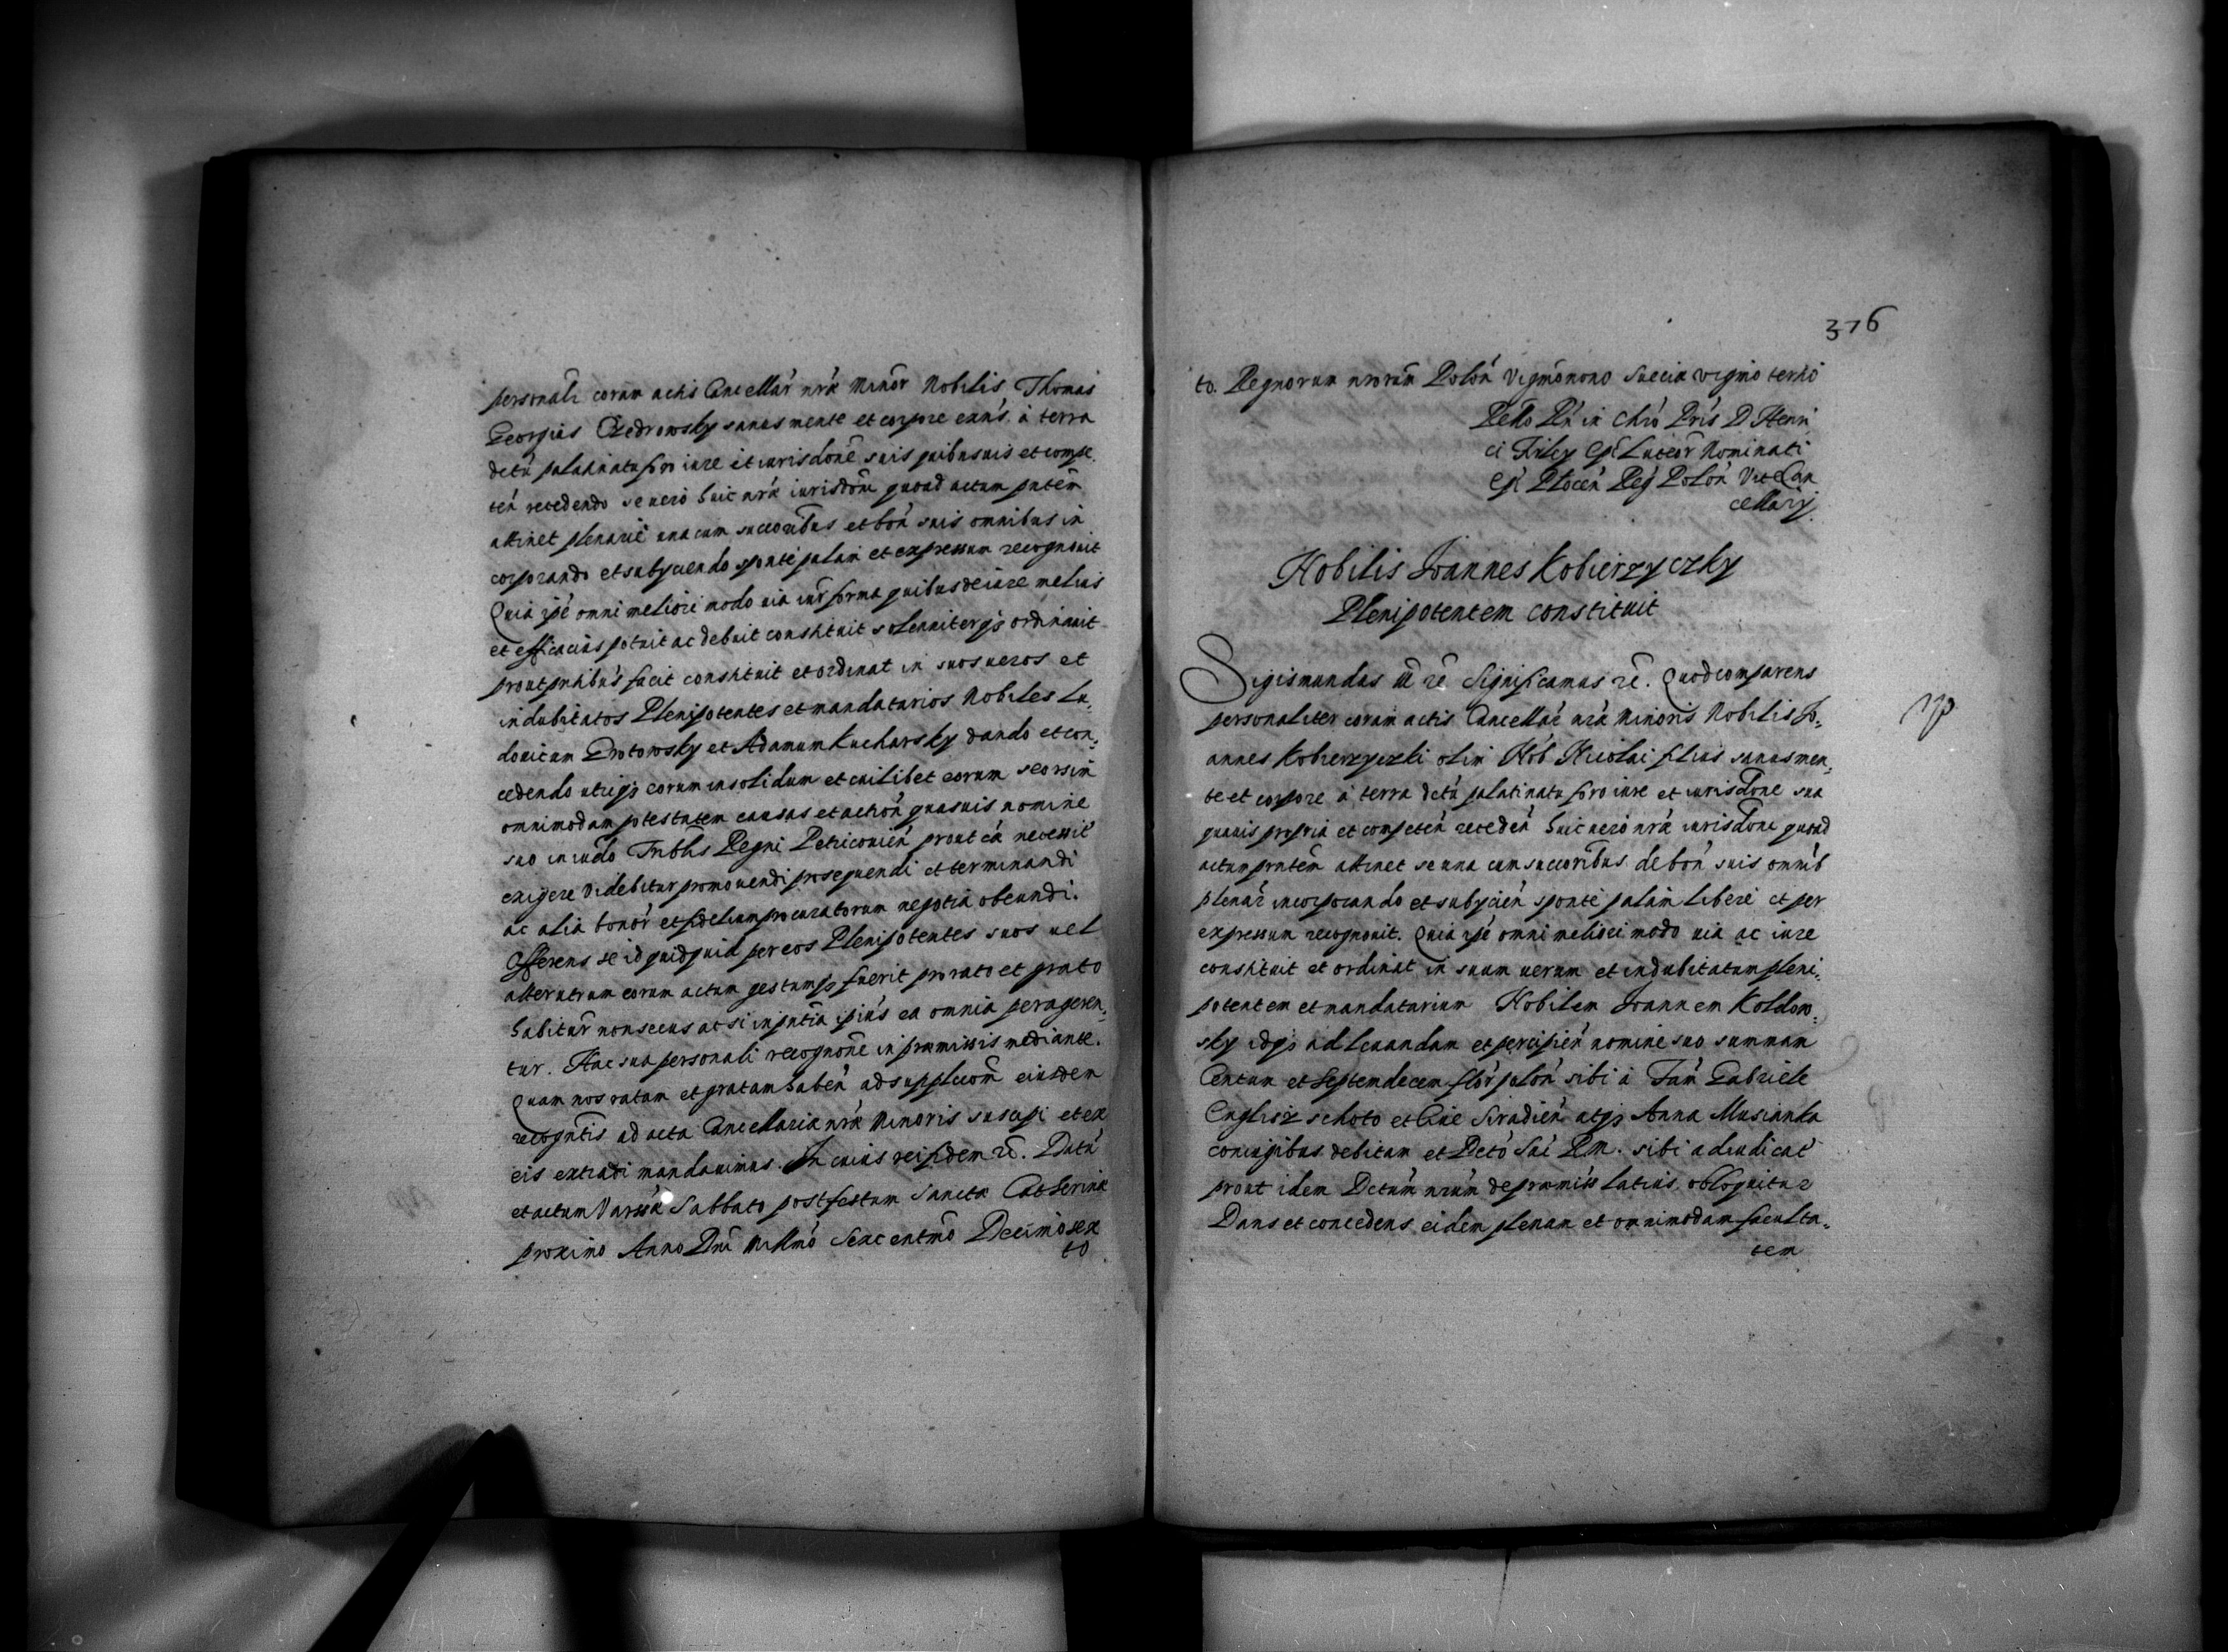 personali coram actis Cancellar nrae Minor Nobilis Thomas
Georgius Czedrowsky sanus mente et corpore exns, à terra
dctu palatinatu foro iure et iurisdone suis quibusuis et compe
ten recedendo se uero huic nrae iurisdoni quoad actum pntem
attinet plenarie una cum succoribus et bon suis omnibus in
corporando et subyciendo sponte palam et expressum recognouit
Quia ipe omni meliori modo uia iur forma quibus de iure melius
et efficacius potuit ac debuit constituit solenniterqz ordinauit
prout pntibus facit constituit et ordinat in suos ueros et
indubitatos Plenipotentes et mandatarios Nobiles Lu,
douicum Grotowsky et Adamum Kucharsky dando et con,
cedendo utriqz eorum insolidum et cuilibet eorum seorsim
omnimodam potestatem causas et action quasuis nomine
suo in iudo Tribtis Regni Petricouien prout ea necessit
exigere videbitur promouendi prosequendi et terminandi
ac alia bonor et fidelium procuratorum negotia obeundi.
Offerens se id quidquid per eos Plenipotentes suos uel
alterutrum eorum actum gestumqz fuerit pro rato et grato
habitur non secus ac si in pntia ipius ea omnia perageren,
tur. Hac sua personali recognone in praemissis mediante.
Quam nos ratam et gratam haben ad supplicom eiusdem
recogntis ad acta Cancellariae nrae Minoris suscipi et ex
eis extradi mandauimus. In cuius rei fidem rc. Datu
et actum Varsae Sabbato post festum Sanctae Catherinae
proximo Anno Dni Millmo Sexcentmo Decimosex
to
376
to. Regnorum nrorum Polon Vigmonono Sueciae vigmo tertio
Relo Rn in Chro Pris D Henri
ci Firley Epi Luceor Nominati
Epi Plocen Reg Polon ViceCan
cellarij.
Nobilis Joannes Kobierzyczky
Plenipotentem constituit
Sigismundus III rc Significamus rc. Quod comparens
personaliter coram actis Cancellar nrae Minoris Nobilis Jo,
annes Kobierzyczki olim Nob Nicolai filius sanus men,
te et corpore à terra dctu palatinatu foro iure et iurisdone sua
quauis propria et competen receden huic uero nrae iurisdoni quoad
actum pntem attinet se una cum succoribus de bon suis omnib
plenar incorporando et subycien sponte palam libere et per
expressum recognouit. Quia ipe omni meliori modo uia ac iure
constituit et ordinat in suum uerum et indubitatum pleni,
potentem et mandatarium Nobilem Joannem Koldow,
sky idqz ad leuandam et percipien nomine suo summam
Centum et Septemdecem flor polon sibi à Fam Gabriele
Englisz schoto et Ciue Siradien atqz Anna Musianka
coniugibus debitam et Dcto Sac R M. sibi adiudicat
prout idem Dctum nrum de praemiss latius obloquitur
Dans et concedens eidem plenam et omnimodam faculta,
tem